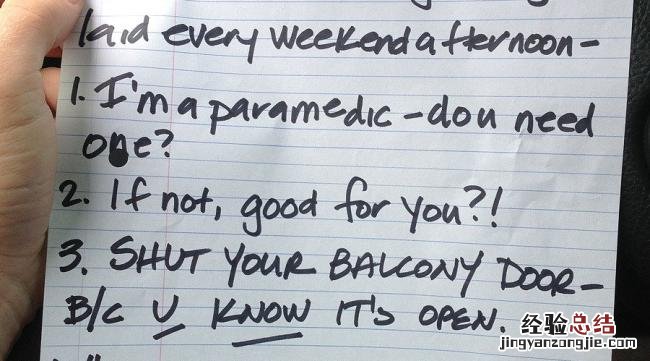 laid every weekend afternoon-
1. I'm a paramedic-do u need
one?
2. If not, good for you?!
3. SHUT YOUR BALCONY DOOR-
B/C U KNOW IT'S OPEN.
经验总结
jingyanzongjie.com